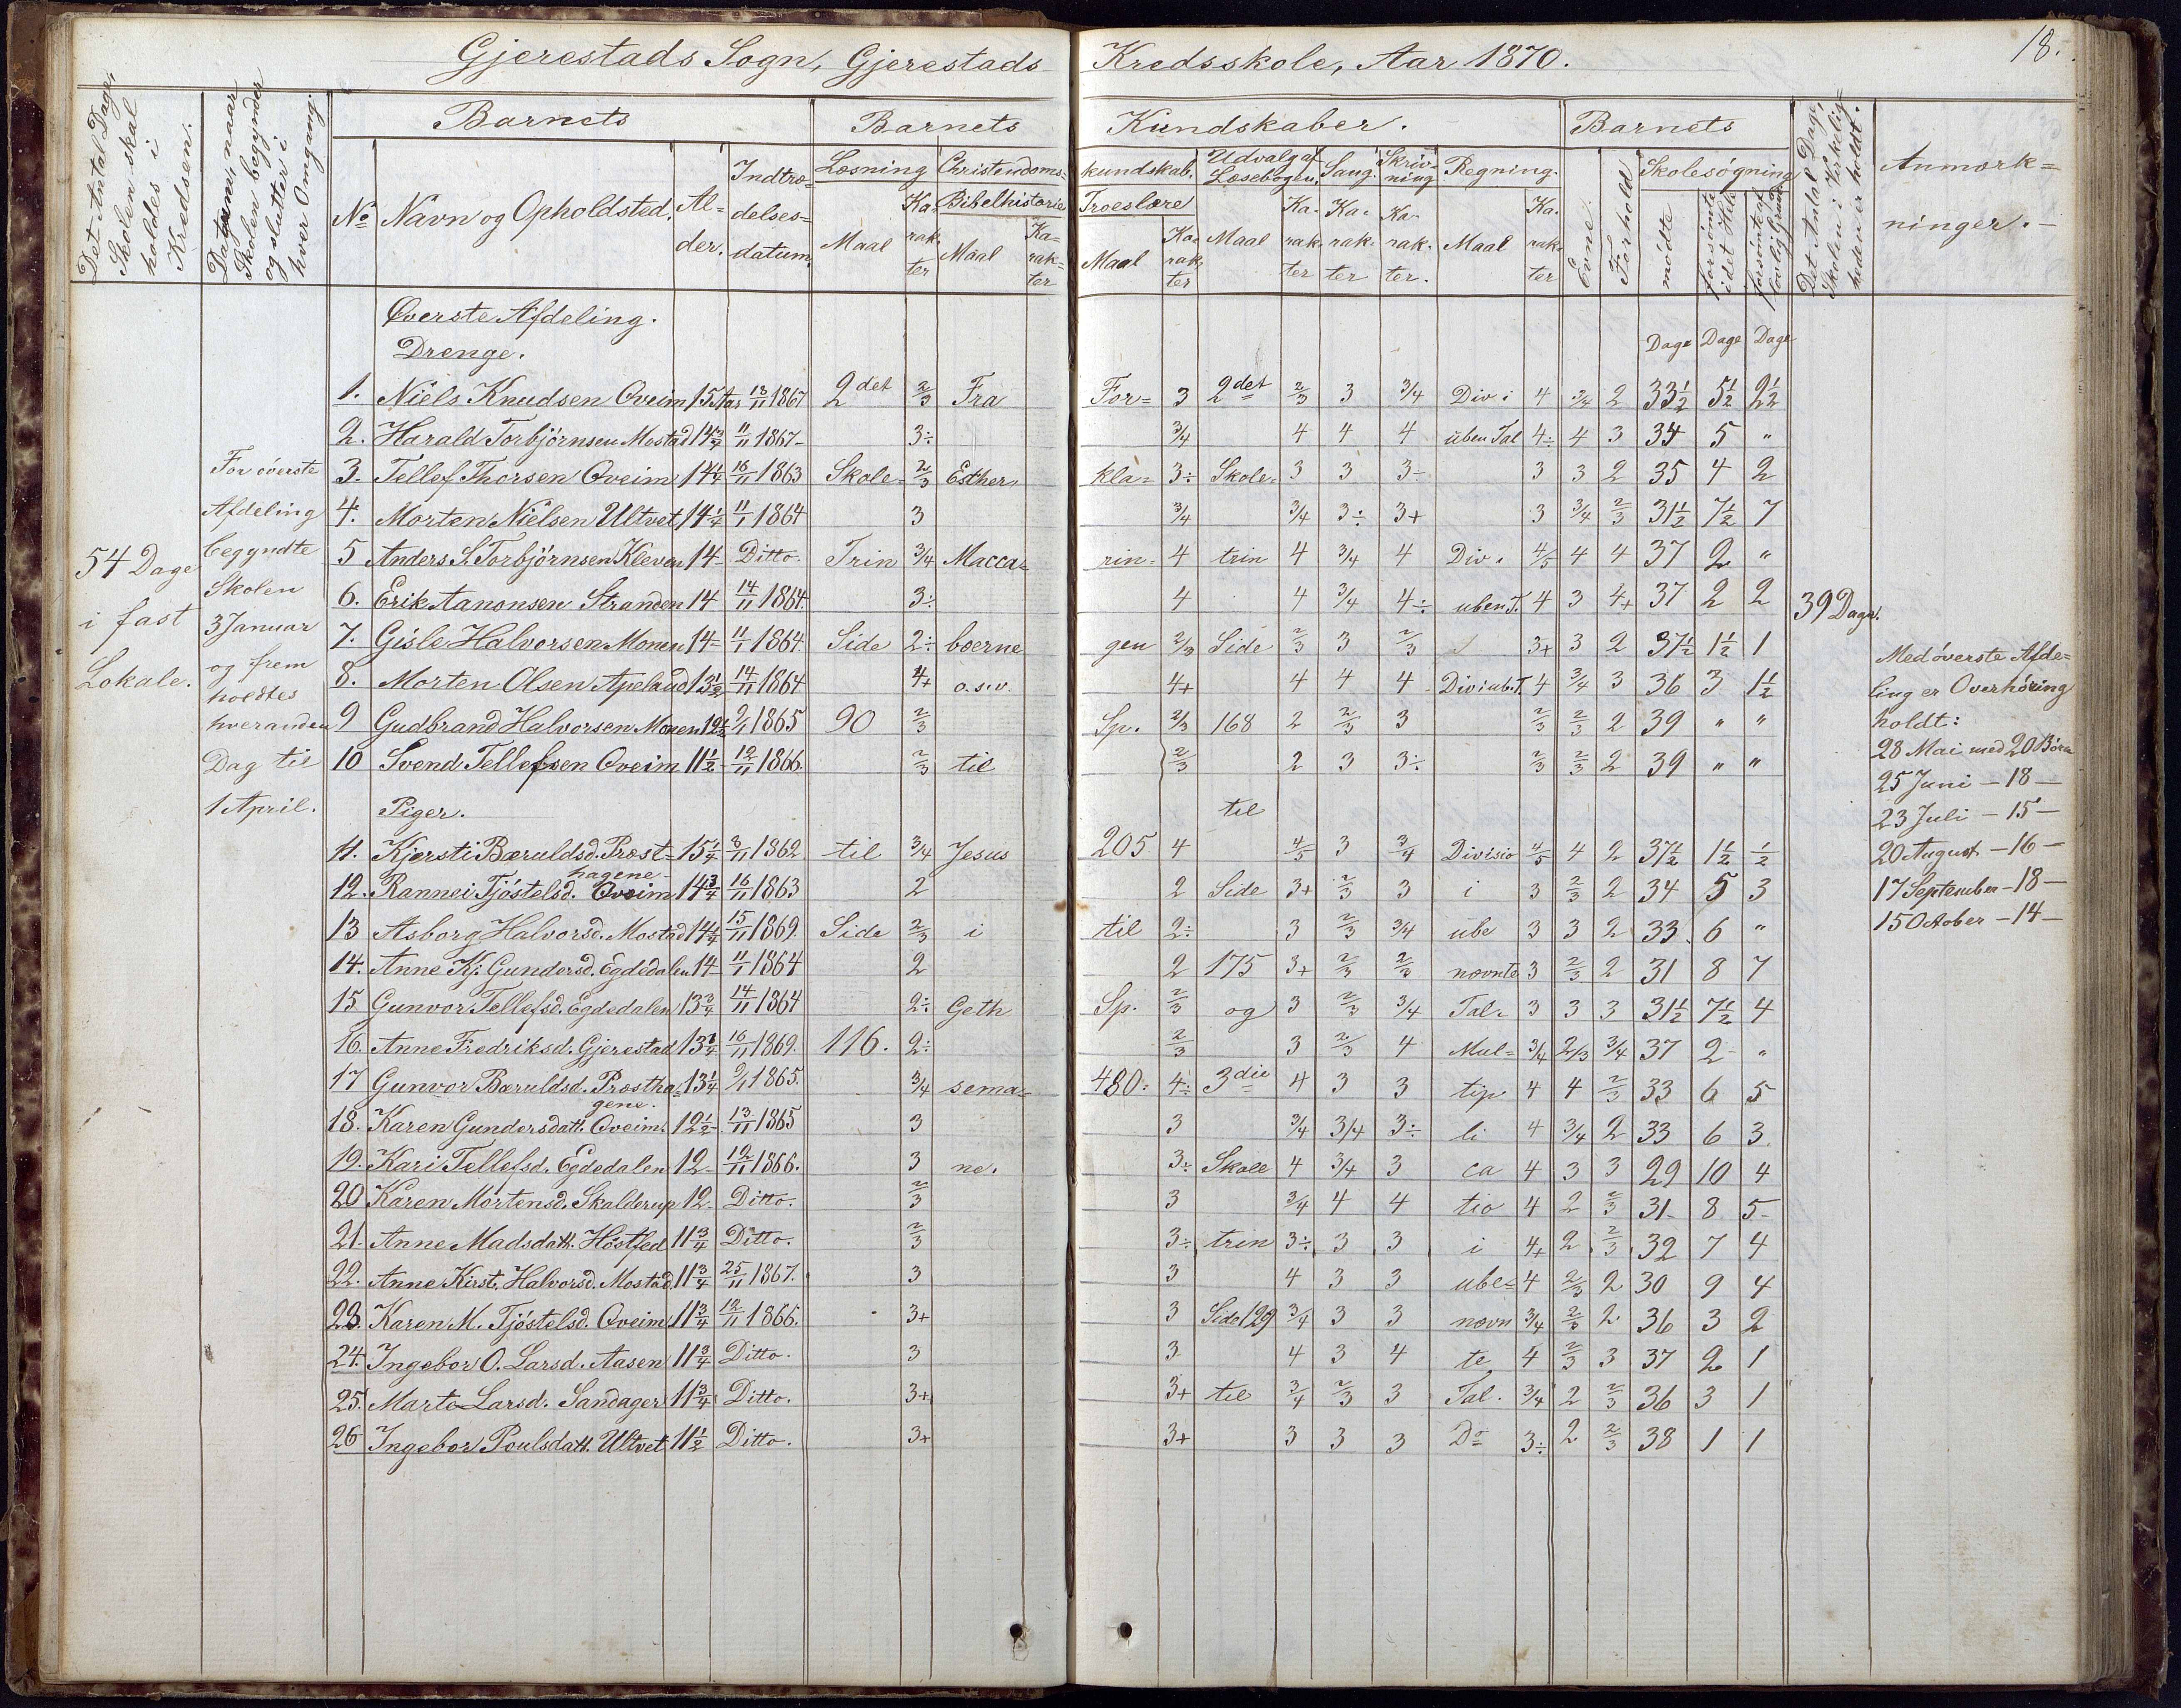 18.
Gjerestads Sogn, Gjerestads Kredsskole, Aar 1870.
Det Antal Dage, Skolen skal holdes i Kredsen.
Datum, naar Skolen begynder og slutter i hver Omgang.
Barnets
Barnets Kundskaber.
Barnets
No
Navn og Opholdsted.
Alder.
Indtrædelsesdatum.
Læsning
Maal
Karakter
Christendomskundskab.
Bibelhistorie
Maal
Karakter
Troeslære
Maal
Karakter
Udvalg af Læsebogen.
Maal
Karakter
Sang.
Karakter
Skrivning
Karakter.
Regning.
Maal
Karakter
Evne.
Forhold
Skolesøgning
mødte
forsømte i det Hele
forsømte af lovlig Grund
Det Antal Dage, Skolen i Virkeligheden er holdt.
Anmærkninger.
Øverste Afdeling.
Drenge.
Dage Dage Dage
1. Niels Knudsen Oveim 15 Aar 13/11 1867 2det 2/3 Fra For= 3 2det 2/3 3 3/4 Div i 4 3/4 2 33½ 5½ 2½
2. Harald Torbjørnsen Mostad 14¾ 11/11 1867 3÷ 3/4 4 4 4 uben Tal 4÷ 4 3 34 5 "
3. Tellef Thorsen Oveim 14¼ 16/11 1863 Skole= 2/3 Esther, kla= 3÷ Skole= 3 3 3÷ 3 3 2 35 4 2
4. Morten Nielsen Ultvet 14¼ 11/1 1864 3 3/4 3/4 3÷ 3+ 3 3/4 2/3 31½ 7½ 7
5 Anders S. Torbjørnsen Kleven 14 Ditto. Trin 3/4 Macca= rin= 4 trin 4 3/4 4 Div. 4/5 4 4 37 2 "
6. Erik Aanonsen Stranden 14 14/11 1864. 3÷ 4 4 3/4 4÷ uben T. 4 3 4+ 37 2 2
7. Gisle Halvorsen Monen 14 11/1 1864. Side 2÷ bæerne gen 2/3 Side 2/3 3 2/3 3+ 3 2 37½ 1½ 1
8. Morten Olsen Apeland 13½ 14/11 1864 4+ o.s.v. 4+ 4 4 4 Div i ub. T. 4 3/4 3 36 3 1½
9 Gudbrand Halvorsen Monen 12½ 9/1 1865 90 2/3 Sp. 2/3 168 2 2/3 3 2/3 2/3 2 39 " "
10 Svend Tellefsen Oveim 11½ 12/11 1866. 2/3 til 2/3 2 3 3÷ 2/3 2/3 2 39 " "
Piger.
til
11. Kjersti Bæruldsd. Præst=hagene 15¼ 3/11 1862 til 3/4 Jesus 205 4 4/5 3 3/4 Divisio 4/5 4 2 37½ 1½ ½
12. Rannei Tjøstelsd. Oveim 14¾ 16/11 1863 2 2 Side 3+ 2/3 3 i 3 2/3 2 34 5 3
13 Asborg Halvorsd. Mostad 14¼ 15/11 1869 Side 2/3 i til 2÷ 3 2/3 3/4 ube 3 3 2 33 6 "
14. Anne Kj. Gundersd. Egdedalen 14 11/1 1864 2 2 175 3+ 2/3 2/3 nævnte 3 2/3 2 31 8 7
15 Gunvor Tellefsd. Egdedalen 13¾ 14/11 1864 2÷ Geth Sp. 2/3 og 3 2/3 3/4 Tal. 3 3 3 31½ 7½ 4
16. Anne Fredriksd. Gjerestad 13¼ 16/11 1869. 116. 2÷ 2/3 3 2/3 4 Mul= 3/4 2/3 3/4 37 2 "
17 Gunvor Bæruldsd. Præstha=gene. 13¼ 9/1 1865. 3/4 sema= 480. 4÷ 3die 4 3 3 tip 4 4 2/3 33 6 5
18. Karen Gundersdatt. Oveim. 12½ 13/11 1865 3 3 3/4 3/4 3÷ li 4 3/4 2 33 6 3
19. Kari Tellefsd. Egdedalen 12 12/11 1866. 3 ne. 3÷ Skole 4 3/4 3 ca 4 3 3 29 10 4
20 Karen Mortensd. Skalderup 12 Ditto. 2/3 3 3/4 4 4 tio 4 2 2/3 31 8 5
21. Anne Madsdatt. Høstfed 11¾ Ditto. 2/3 3÷ trin 3÷ 3 3 i 4+ 2 2/3 32 7 4
22. Anne Kirst. Halvorsd. Mostad 11¾ 25/11 1867. 3 3 4 3 3 ube= 4 2/3 2 30 9 4
23. Karen M. Tjøstelsd. Oveim 11¾ 12/11 1866. 3+ 3 Side 129 3/4 3 3 nævn 3/4 2/3 2 36 3 2
24. Ingebor O. Larsd. Aasen 11¾ Ditto. 3 3 4 3 4 te 4 2/3 3 37 2 1
25. Marte Larsd. Sandager 11¾ Ditto. 3+ 3+ til 3/4 2/3 3 Tal. 3/4 2 2/3 36 3 1
26 Ingebor Poulsdatt. Ultvet 11½ Ditto. 3+ 3+ 3 3 3 Do 3÷ 2 2/3 38 1 1
54 Dage
i fast
Lokale.
For øverste
Afdeling
begyndte
Skolen
3 Januar
og frem
holdtes
hveranden
Dag til
1 April.
39 Dage.
Med øverste Afde=
ling er Overhøring
holdt:
28 Mai med 20 Børn
25 Juni – 18 –
23 Juli – 15 –
20 August – 16 –
17 September – 18 –
15 October – 14 –